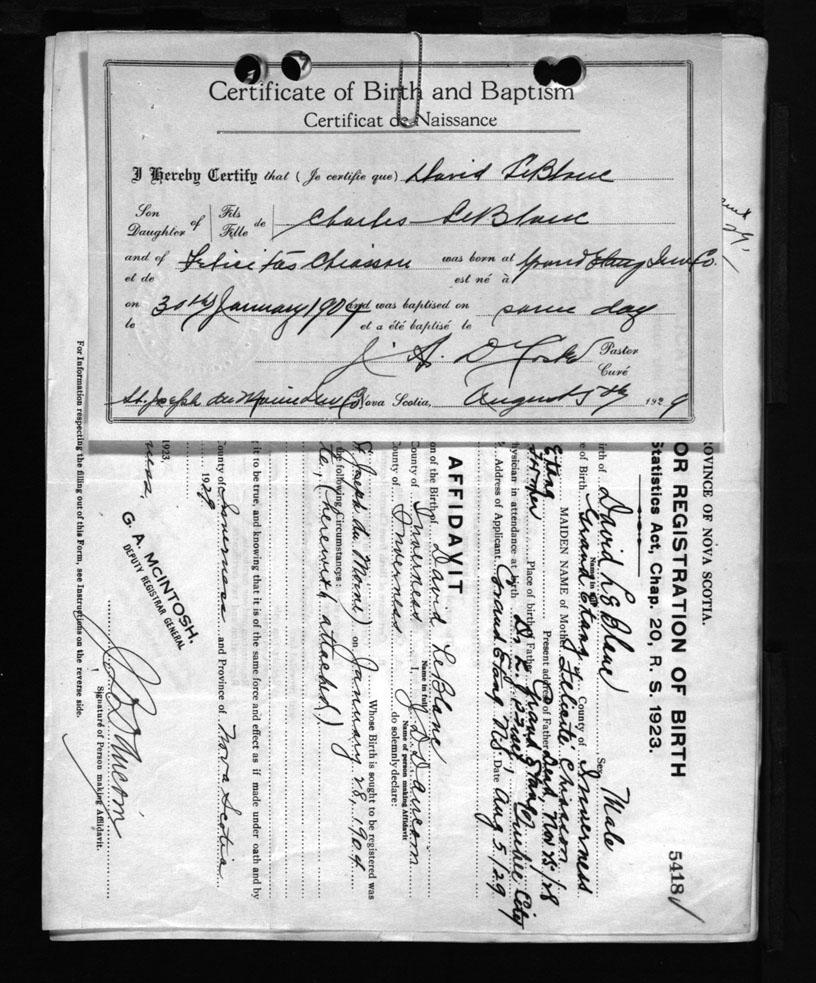 Certificate of Birth and Baptism
Certificat de Naissance
I Hereby Certify that (Je certifie que) David LeBlanc
Son Daughter of Fils Fille de Charles LeBlanc
and of et de Felicitas Chiasson was born at est né à Grand Etang Inv Co.
on le 30th January 1904 and was baptised on et a été baptisé le same day
Pastor
Curé
St. Joseph du Moine Inv Co Nova Scotia, August 5th 1929
ROVINCE OF NOVA SCOTIA.
OR REGISTRATION OF BIRTH
Statistics Act, Chap. 20, R. S. 1923.
5418
irth of David LeBlanc Sex Male
Name in full
e of Birth Grand Etang County of Inverness
MAIDEN NAME of Mother Felicité Chiasson
Present address of Father Dead, Nov 25/28
Etang
Farmer Place of birth of Father Grand Etang
hysician in attendance at birth Dr. L. Quebec City
Address of Applicant Grand Etang N.S. Date Aug 5/29
AFFIDAVIT
on of the Birth of David LeBlanc
Name in full
County of Inverness I, J. D. Aucoin
Name of person making Affidavit
County of Inverness do solemnly declare:
Whose Birth is sought to be registered was
St Joseph du Moine) on January 28, 1904
the following circumstances:
te, (herewith attached)
it to be true, and knowing that it is of the same force and effect as if made under oath and by
ounty of Inverness and Province of Nova Scotia
1929
1923,
G. A. MCINTOSH,
DEPUTY REGISTRAR GENERAL
J. D. Aucoin
Signature of Person making Affidavit.
For Information respecting the filling out of this Form, see Instructions on the reverse side.